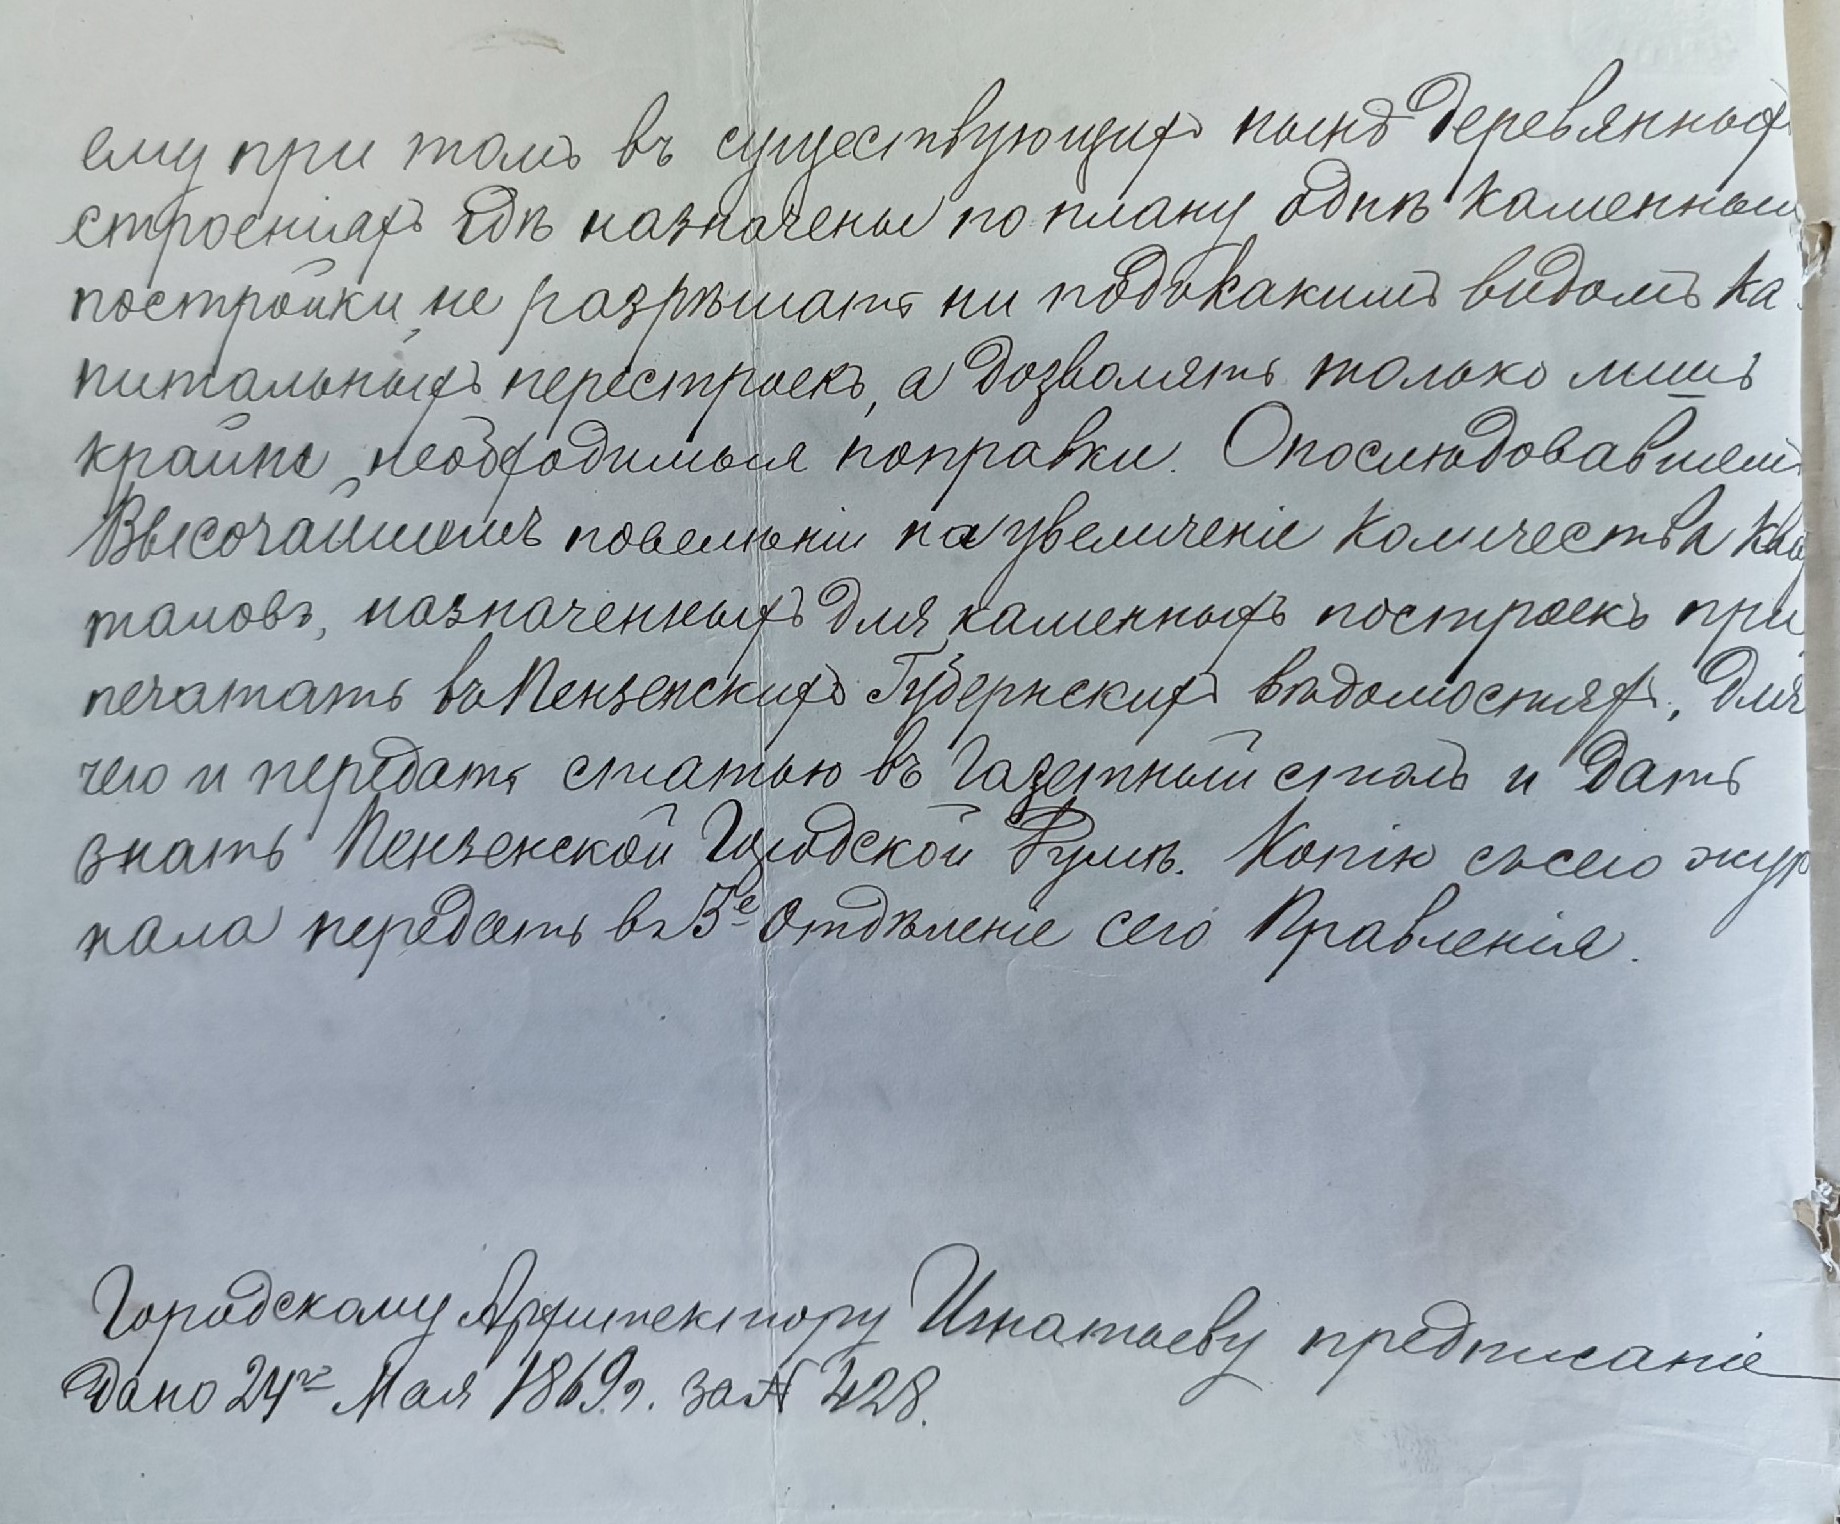 ему при томъ въ существующихъ нынѣ деревянныхъ
строеніяхъ гдѣ назначены по плану однѣ каменныя
постройки, не разрѣшать ни подъ какимъ видомъ ка-
питальныхъ перестроекъ, а дозволять только лишь
крайне необходимыя поправки. О послѣдовавшемъ
Высочайшемъ повелѣніи на увеличеніе количества квар
таловъ, назначенныхъ для каменныхъ построекъ при
печатать въ Пензенскихъ Губернскихъ вѣдомостяхъ, для
чего и передать статью въ Газетный столъ и дать
знать Пензенской Городской Думѣ. Копію съ сего жур
нала передать въ 3е Отдѣленіе сего Правленія.
Городскому Архитектору Игнатьеву предписаніе
дано 24го Мая 1869 г. за № 428.